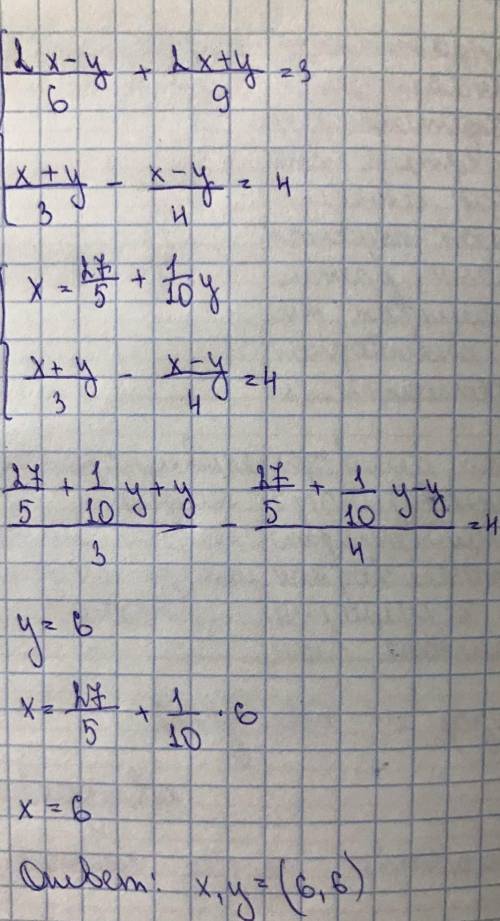 (2x-y)/6 + (2x+y)/9 = 3
(x+y)/3 - (x-y)/4 = 4
x = 27/5 + 1/10 y
(x+y)/3 - (x-y)/4 = 4
(27/5 + 1/10 y+y)/3 - (27/5 + 1/10 y-y)/4 = 4
y = 6
x = 27/5 + 1/10 · 6
x = 6
Ответ: x, y = (6, 6)